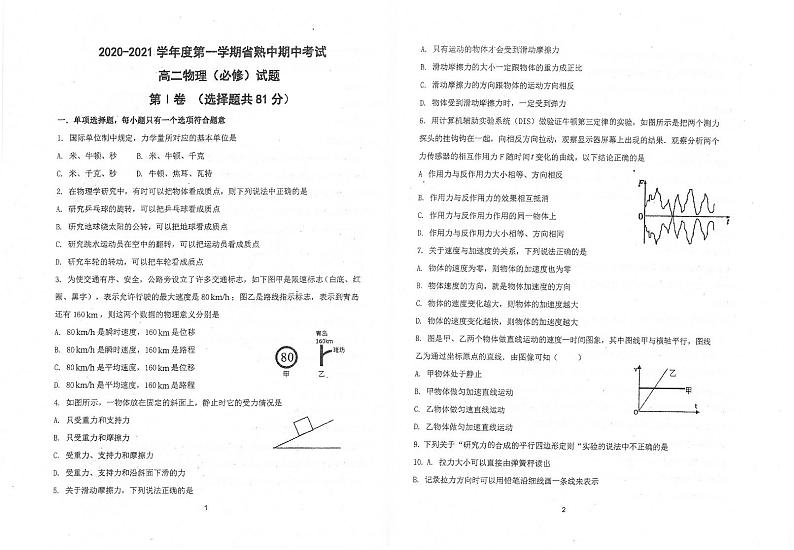 2020-2021 学年度第一学期省熟中期中考试
高二物理（必修）试题
第Ⅰ卷 （选择题共 81 分）
一. 单项选择题，每小题只有一个选项符合题意
1. 国际单位制中规定，力学量所对应的基本单位是
A. 米、牛顿、秒 B. 米、牛顿、千克
C. 米、千克、秒 D. 牛顿、焦耳、瓦特
2. 在物理学研究中，有时可以把物体看成质点，则下列说法中正确的是
A. 研究乒乓球的旋转，可以把乒乓球看成质点
B. 研究地球绕太阳的公转，可以把地球看成质点
C. 研究跳水运动员在空中的翻转，可以把运动员看成质点
D. 研究车轮的转动，可以把车轮看成质点
3. 为使交通有序、安全，公路旁设立了许多交通标志，如下图甲是限速标志(白底、红
圈、黑字)，表示允许行驶的最大速度是 80 km/h；图乙是路线指示标志，表示到青岛
还有 160 km，则这两个数据的物理意义分别是
A. 80 km/h 是瞬时速度，160 km 是位移
B. 80 km/h 是瞬时速度，160 km 是路程
C. 80 km/h 是平均速度，160 km 是位移
D. 80 km/h 是平均速度，160 km 是路程
80
甲
青岛
160km
潍坊
乙
4. 如图所示，一物体放在固定的斜面上，静止时它的受力情况是
A. 只受重力和支持力
B. 只受重力和摩擦力
C. 受重力、支持力和摩擦力
D. 受重力、支持力和沿斜面下滑的力
5. 关于滑动摩擦力，下列说法正确的是
1
A. 只有运动的物体才会受到滑动摩擦力
B. 滑动摩擦力的大小一定跟物体的重力成正比
C. 滑动摩擦力的方向跟物体的运动方向相反
D. 物体受到滑动摩擦力时，一定受到弹力
6. 用计算机辅助实验系统（DIS）做验证牛顿第三定律的实验，如图所示是把两个测力
探头的挂钩钩在一起，向相反方向拉动，观察显示器屏幕上出现的结果．观察分析两个
力传感器的相互作用力 F 随时间 t 变化的曲线，以下结论正确的是
A 作用力与反作用力大小相等、方向相反
B. 作用力与反作用力的效果相互抵消
C. 作用力与反作用力作用的同一物体上
D. 作用力与反作用力大小相等、方向相同
F
0
t
7. 关于速度与加速度的关系，下列说法正确的是
A. 物体的速度为零，则物体的加速度也为零
B. 物体速度的方向，就是物体加速度的方向
C. 物体的速度变化越大，则物体的加速度越大
D. 物体的速度变化越快，则物体的加速度越大
8. 图是甲、乙两个物体做直线运动的速度一时间图象，其中图线甲与横轴平行，图线
乙为通过坐标原点的直线．由图像可知（ ）
A. 甲物体处于静止
B. 甲物体做匀加速直线运动
C. 乙物体做匀速直线运动
D. 乙物体做匀加速直线运动
v
乙
甲
0
t
9. 下列关于“研究力的合成的平行四边形定则”实验的说法中不正确的是
10. A. 拉力大小可以直接由弹簧秤读出
B. 记录拉力方向时可以用铅笔沿细线画一条线来表示
2